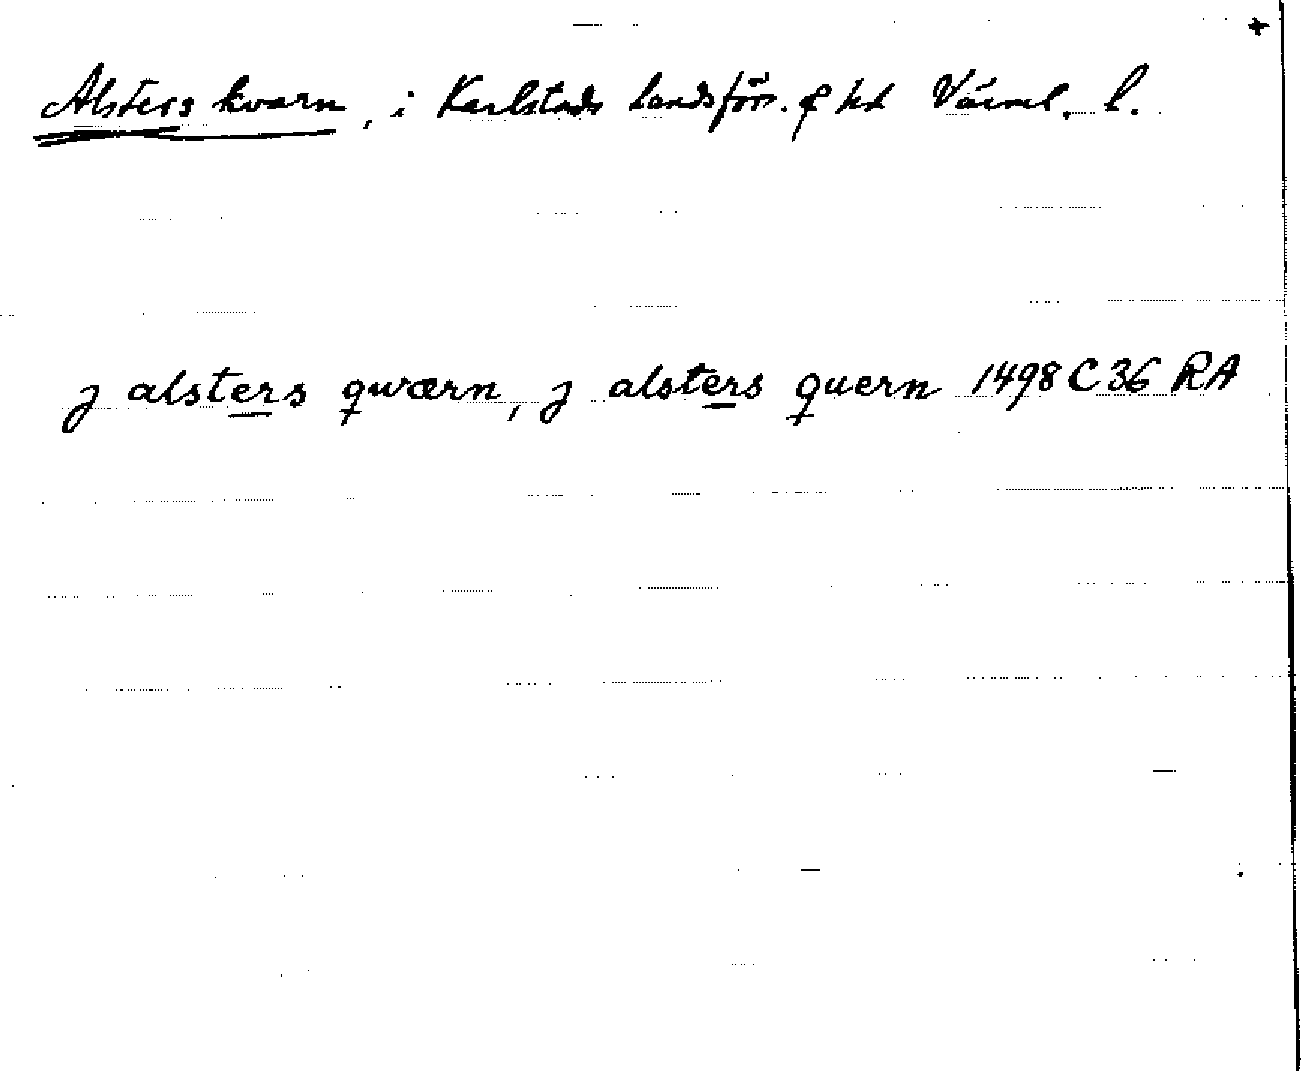 +
Alsters kvarn, i Karlstads landsförs. o hd Värml. l.
j alsters qwærn, j alsters quern 1498 C 36 RA